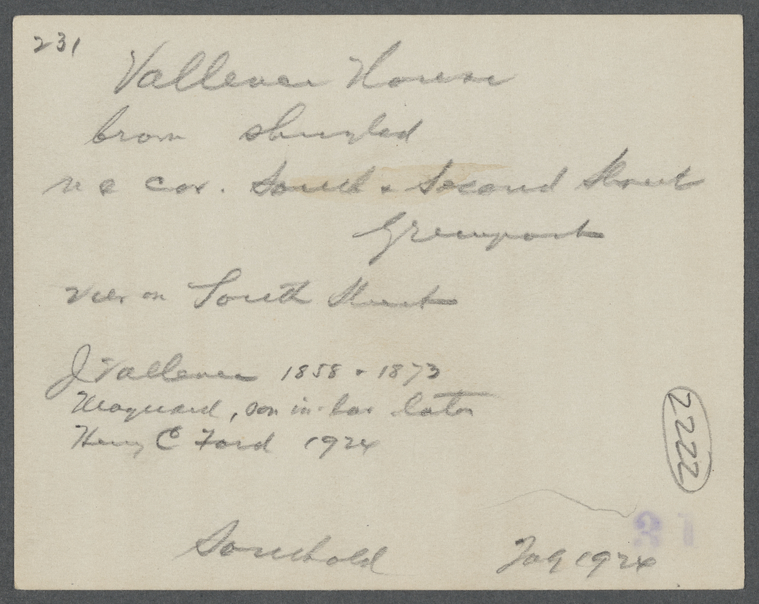 231
Vallever House
brown shingled
n e cor. South & Second Street
Greenport
View on South Street
J Vallever 1858 & 1873
Maynard, son in-law later
Henry C Ford 1924
2222
21
Southold July 1924